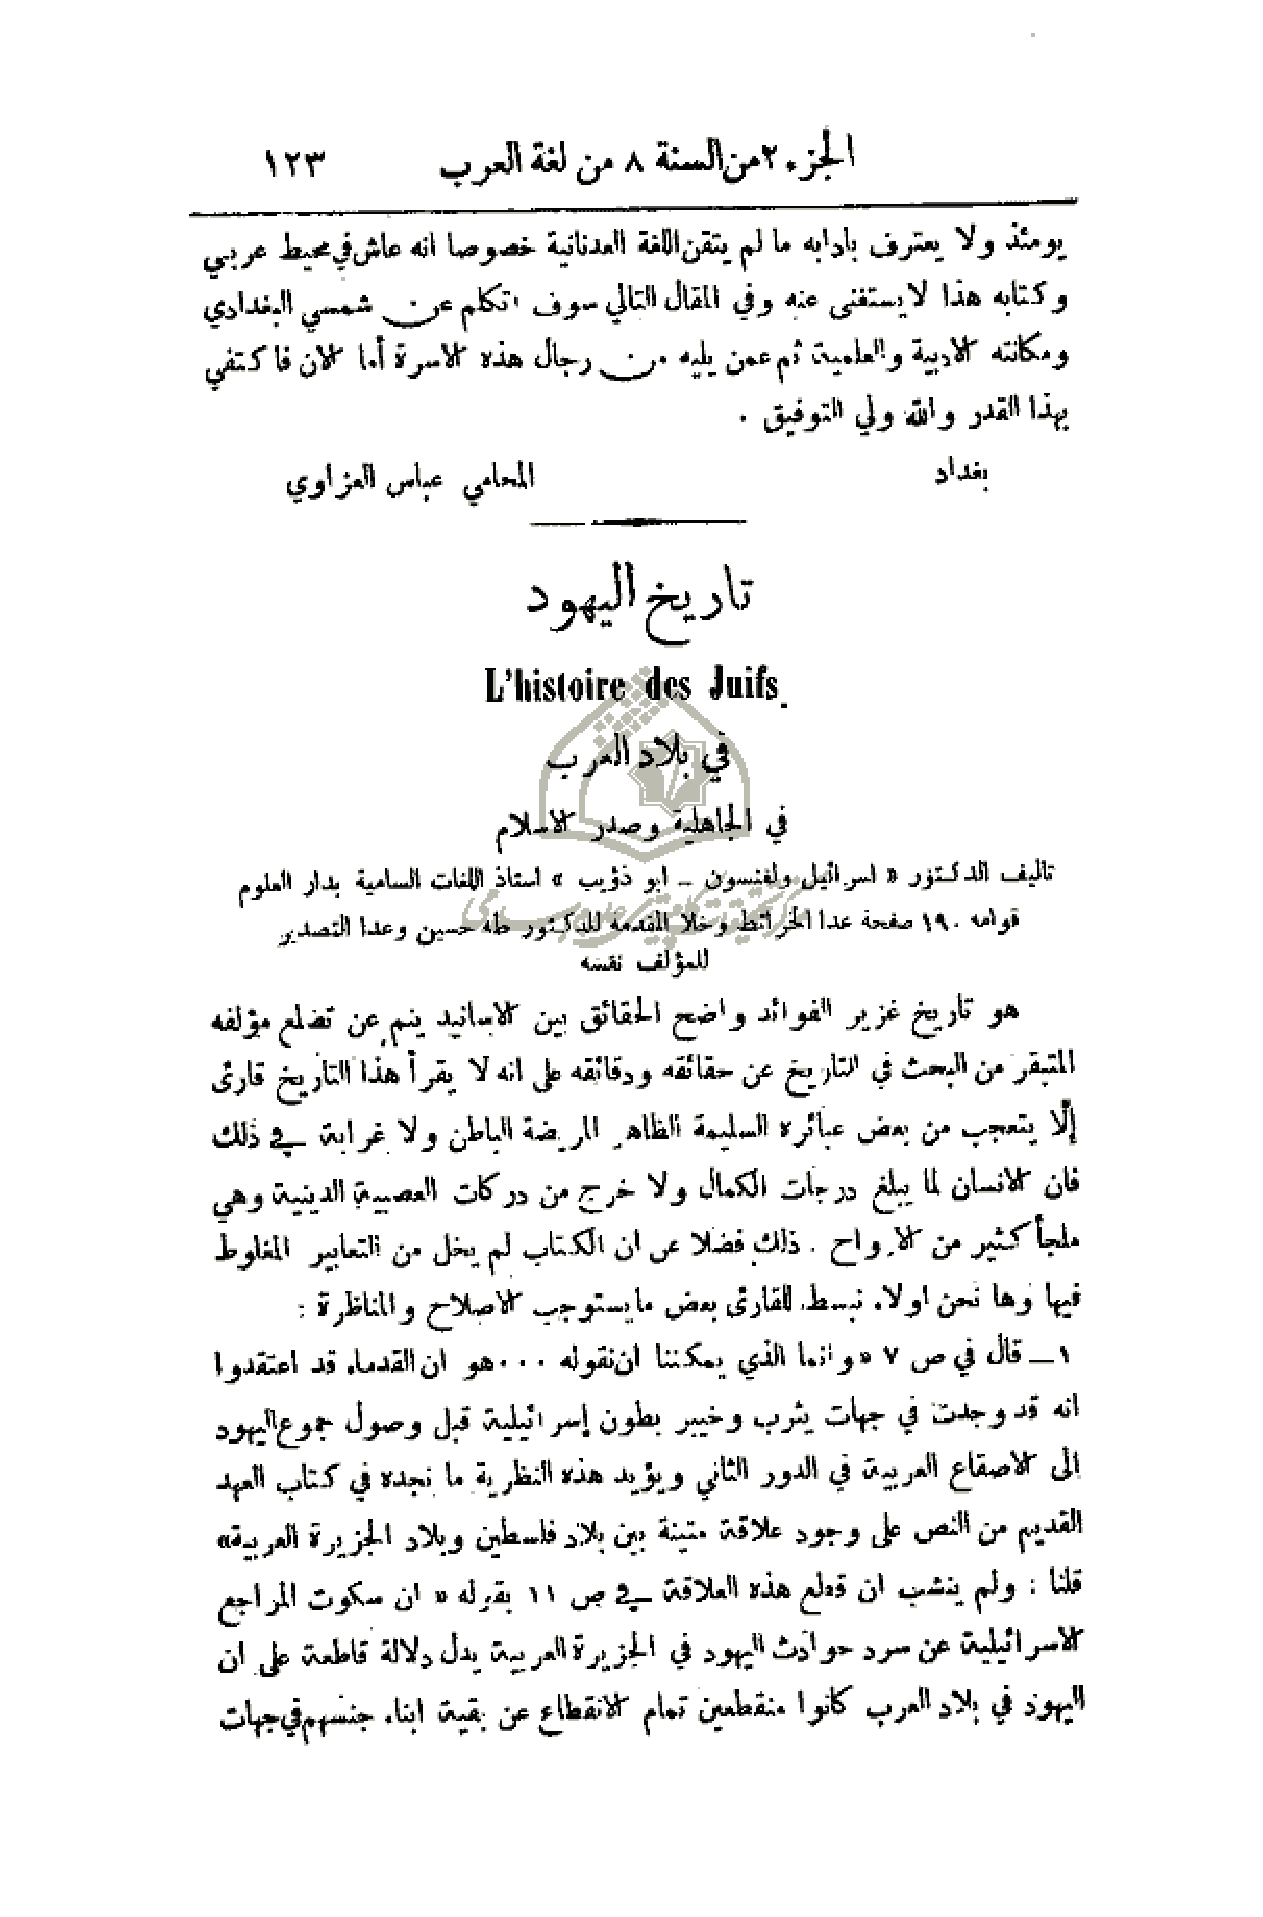 الجزء ٢ من السنة ٨ من لغة العرب ١٢٣
يومئذ ولا يعترف بادابه ما لم يتقن اللغة العدنانية خصوصا انه عاش في محيط عربي
وكتابه هذا لا يستغنى عنه وفي المقال التالي سوف اتكلم عن شمسي البغدادي
ومكانته الادبية والعلمية ثم عمن يليه من رجال هذه الاسرة أما الان فاكتفي
بهذا القدر والله ولي التوفيق .
بغداد المحامي عباس العزاوي
تاريخ اليهود
L'histoire des Juifs.
في بلاد العرب
في الجاهلية وصدر الاسلام
تاليف الدكتور « اسرائيل ولفنسون ـ ابو ذؤيب » استاذ اللغات السامية بدار العلوم
قوامه ١٩٠ صفحة عدا الخرائط وخلا المقدمة للدكتور طه حسين وعدا التصدير
للمؤلف نفسه
هو تاريخ غزير الفوائد واضح الحقائق بين الاسانيد ينم عن تضلع مؤلفه
المتبقر من البحث في التاريخ عن حقائقه ودقائقه على انه لا يقرأ هذا التاريخ قارئ
إلّا يتعجب من بعض عبائره السليمة الظاهر المريضة الباطن ولا غرابة في ذلك
فان الانسان لما يبلغ درجات الكمال ولا خرج من دركات العصبية الدينية وهي
ملجأ كثير من الارواح . ذلك فضلا عن ان الكتاب لم يخل من التعابير المغلوط
فيها وها نحن اولاء نبسط للقارئ بعض ما يستوجب الاصلاح والمناظرة :
١ـ قال في ص ٧ «وانما الذي يمكننا ان نقوله ... هو ان القدماء قد اعتقدوا
انه قد وجدت في جهات يثرب وخيبر بطون إسرائيلية قبل وصول جموع اليهود
الى الاصقاع العربية في الدور الثاني ويؤيد هذه النظرية ما نجده في كتاب العهد
القديم من النص على وجود علاقة متينة بين بلاد فلسطين وبلاد الجزيرة العربية»
قلنا : ولم ينشب ان قطع هذه العلاقة في ص ١١ بقوله « ان سكوت المراجع
الاسرائيلية عن سرد حوادث اليهود في الجزيرة العربية يدل دلالة قاطعة على ان
اليهود في بلاد العرب كانوا منقطعين تمام الانقطاع عن بقية ابناء جنسهم في جهات